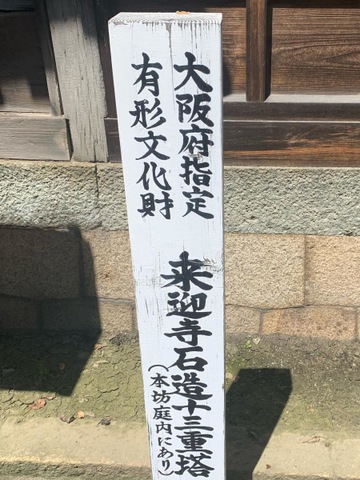 大阪府指定
有形文化財
来迎寺石造十三重塔
(本坊庭内にあり)